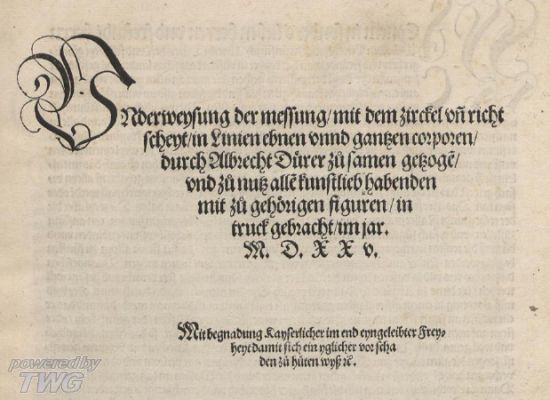 VNderweysung der messung/ mit dem zirckel uñ richt
scheyt/ in Linien ebnen unnd gantzen corporen/
durch Albrecht Dürer zů samen getzogē/
und zů nutz allē kunstlieb habenden
mit zů gehörigen figuren/ in
truck gebracht/ im jar.
M. D. X X v.
Mit begnadung Kayserlicher im end eyngeleibter Frey-
heyt damit sich ein yglicher vor scha
den zů hüten wyß ꝛc.
powered by
TWG